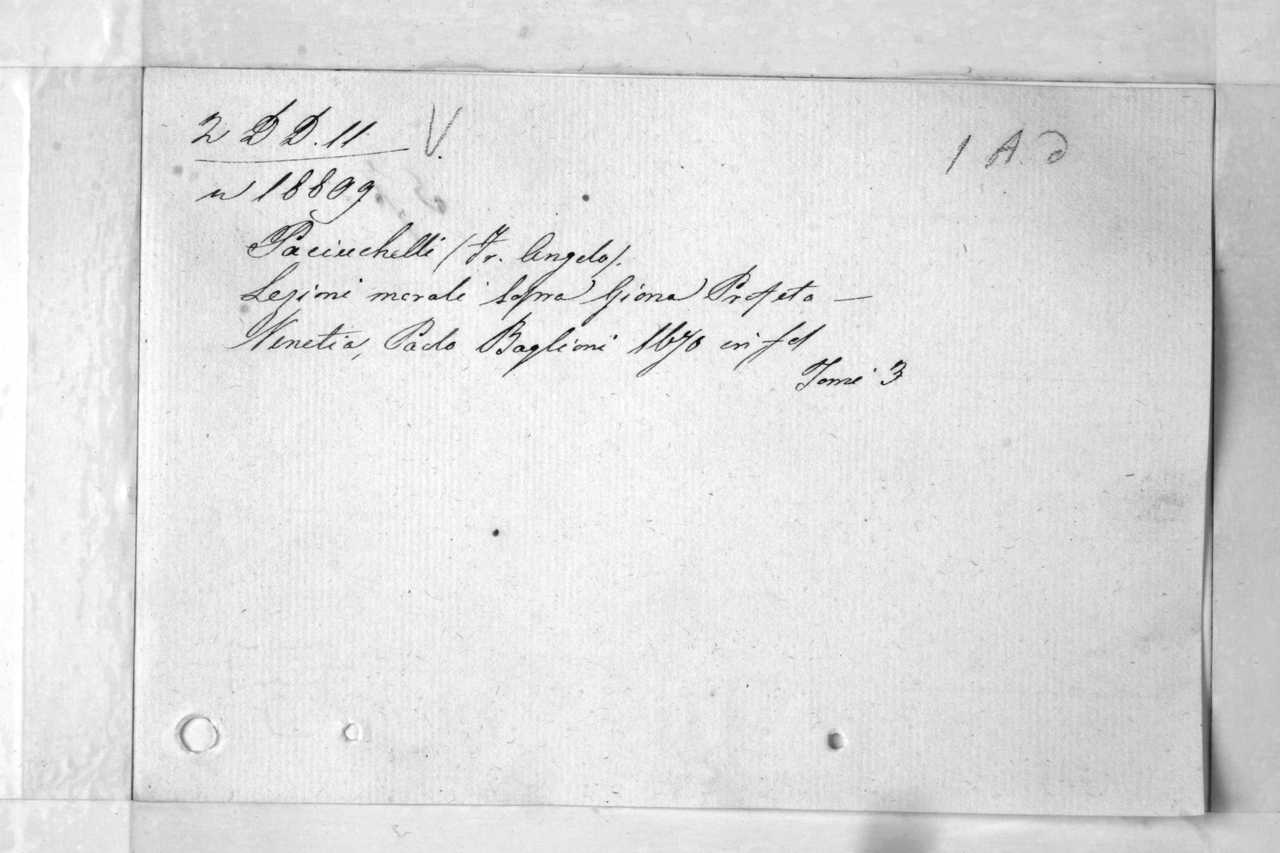 2 D D. 11 V. 1 A. d
n 18809
Paciuchelli (Fr. Angelo).
Lezioni morali sopra Giona Profeta —
Venetia, Paolo Baglioni 1670 in fol
Tomi 3